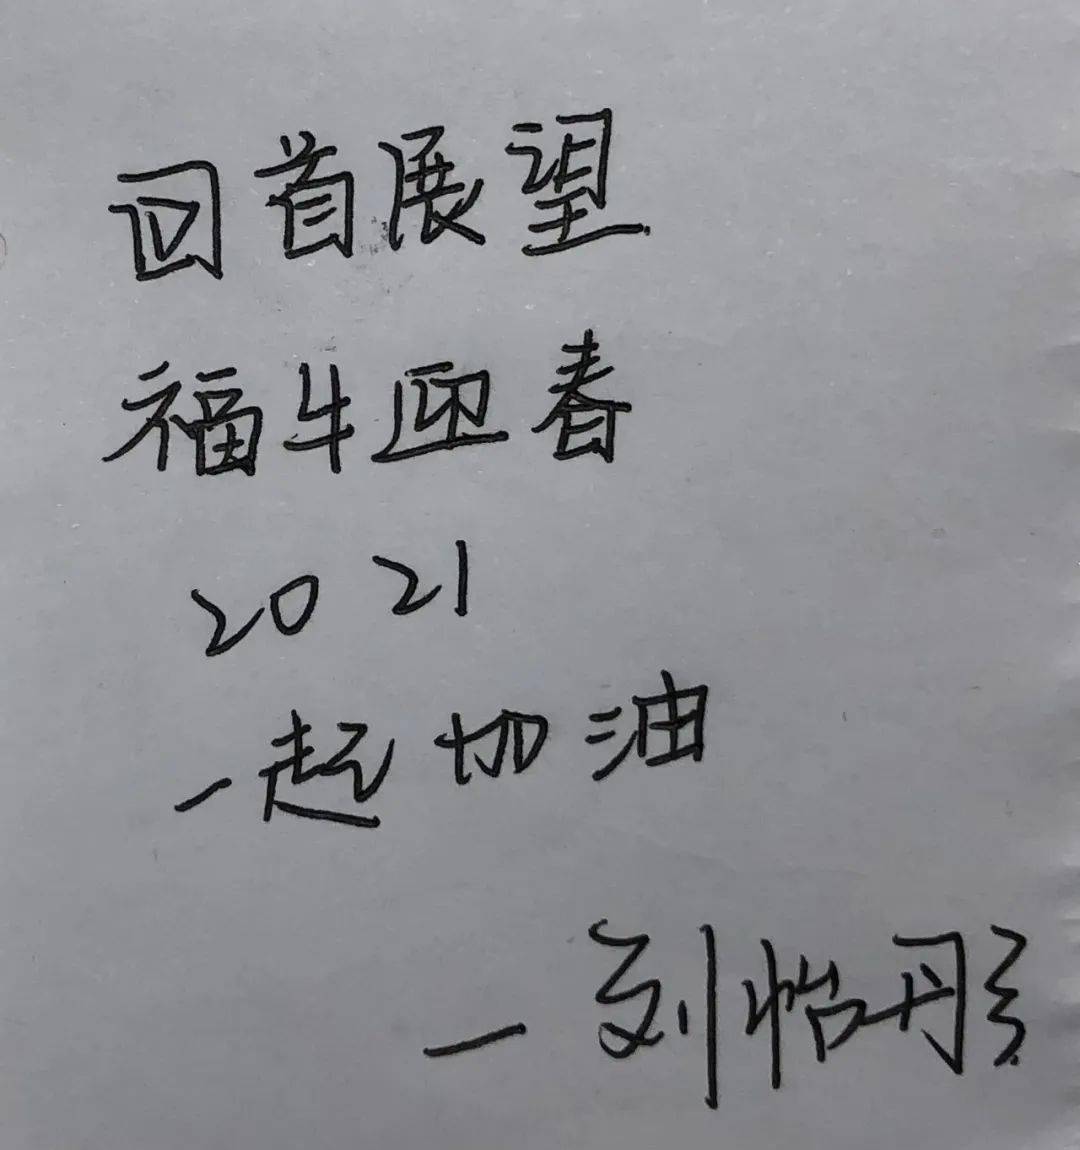 回首展望
福牛迎春
2021
一起加油
一刘怡彤